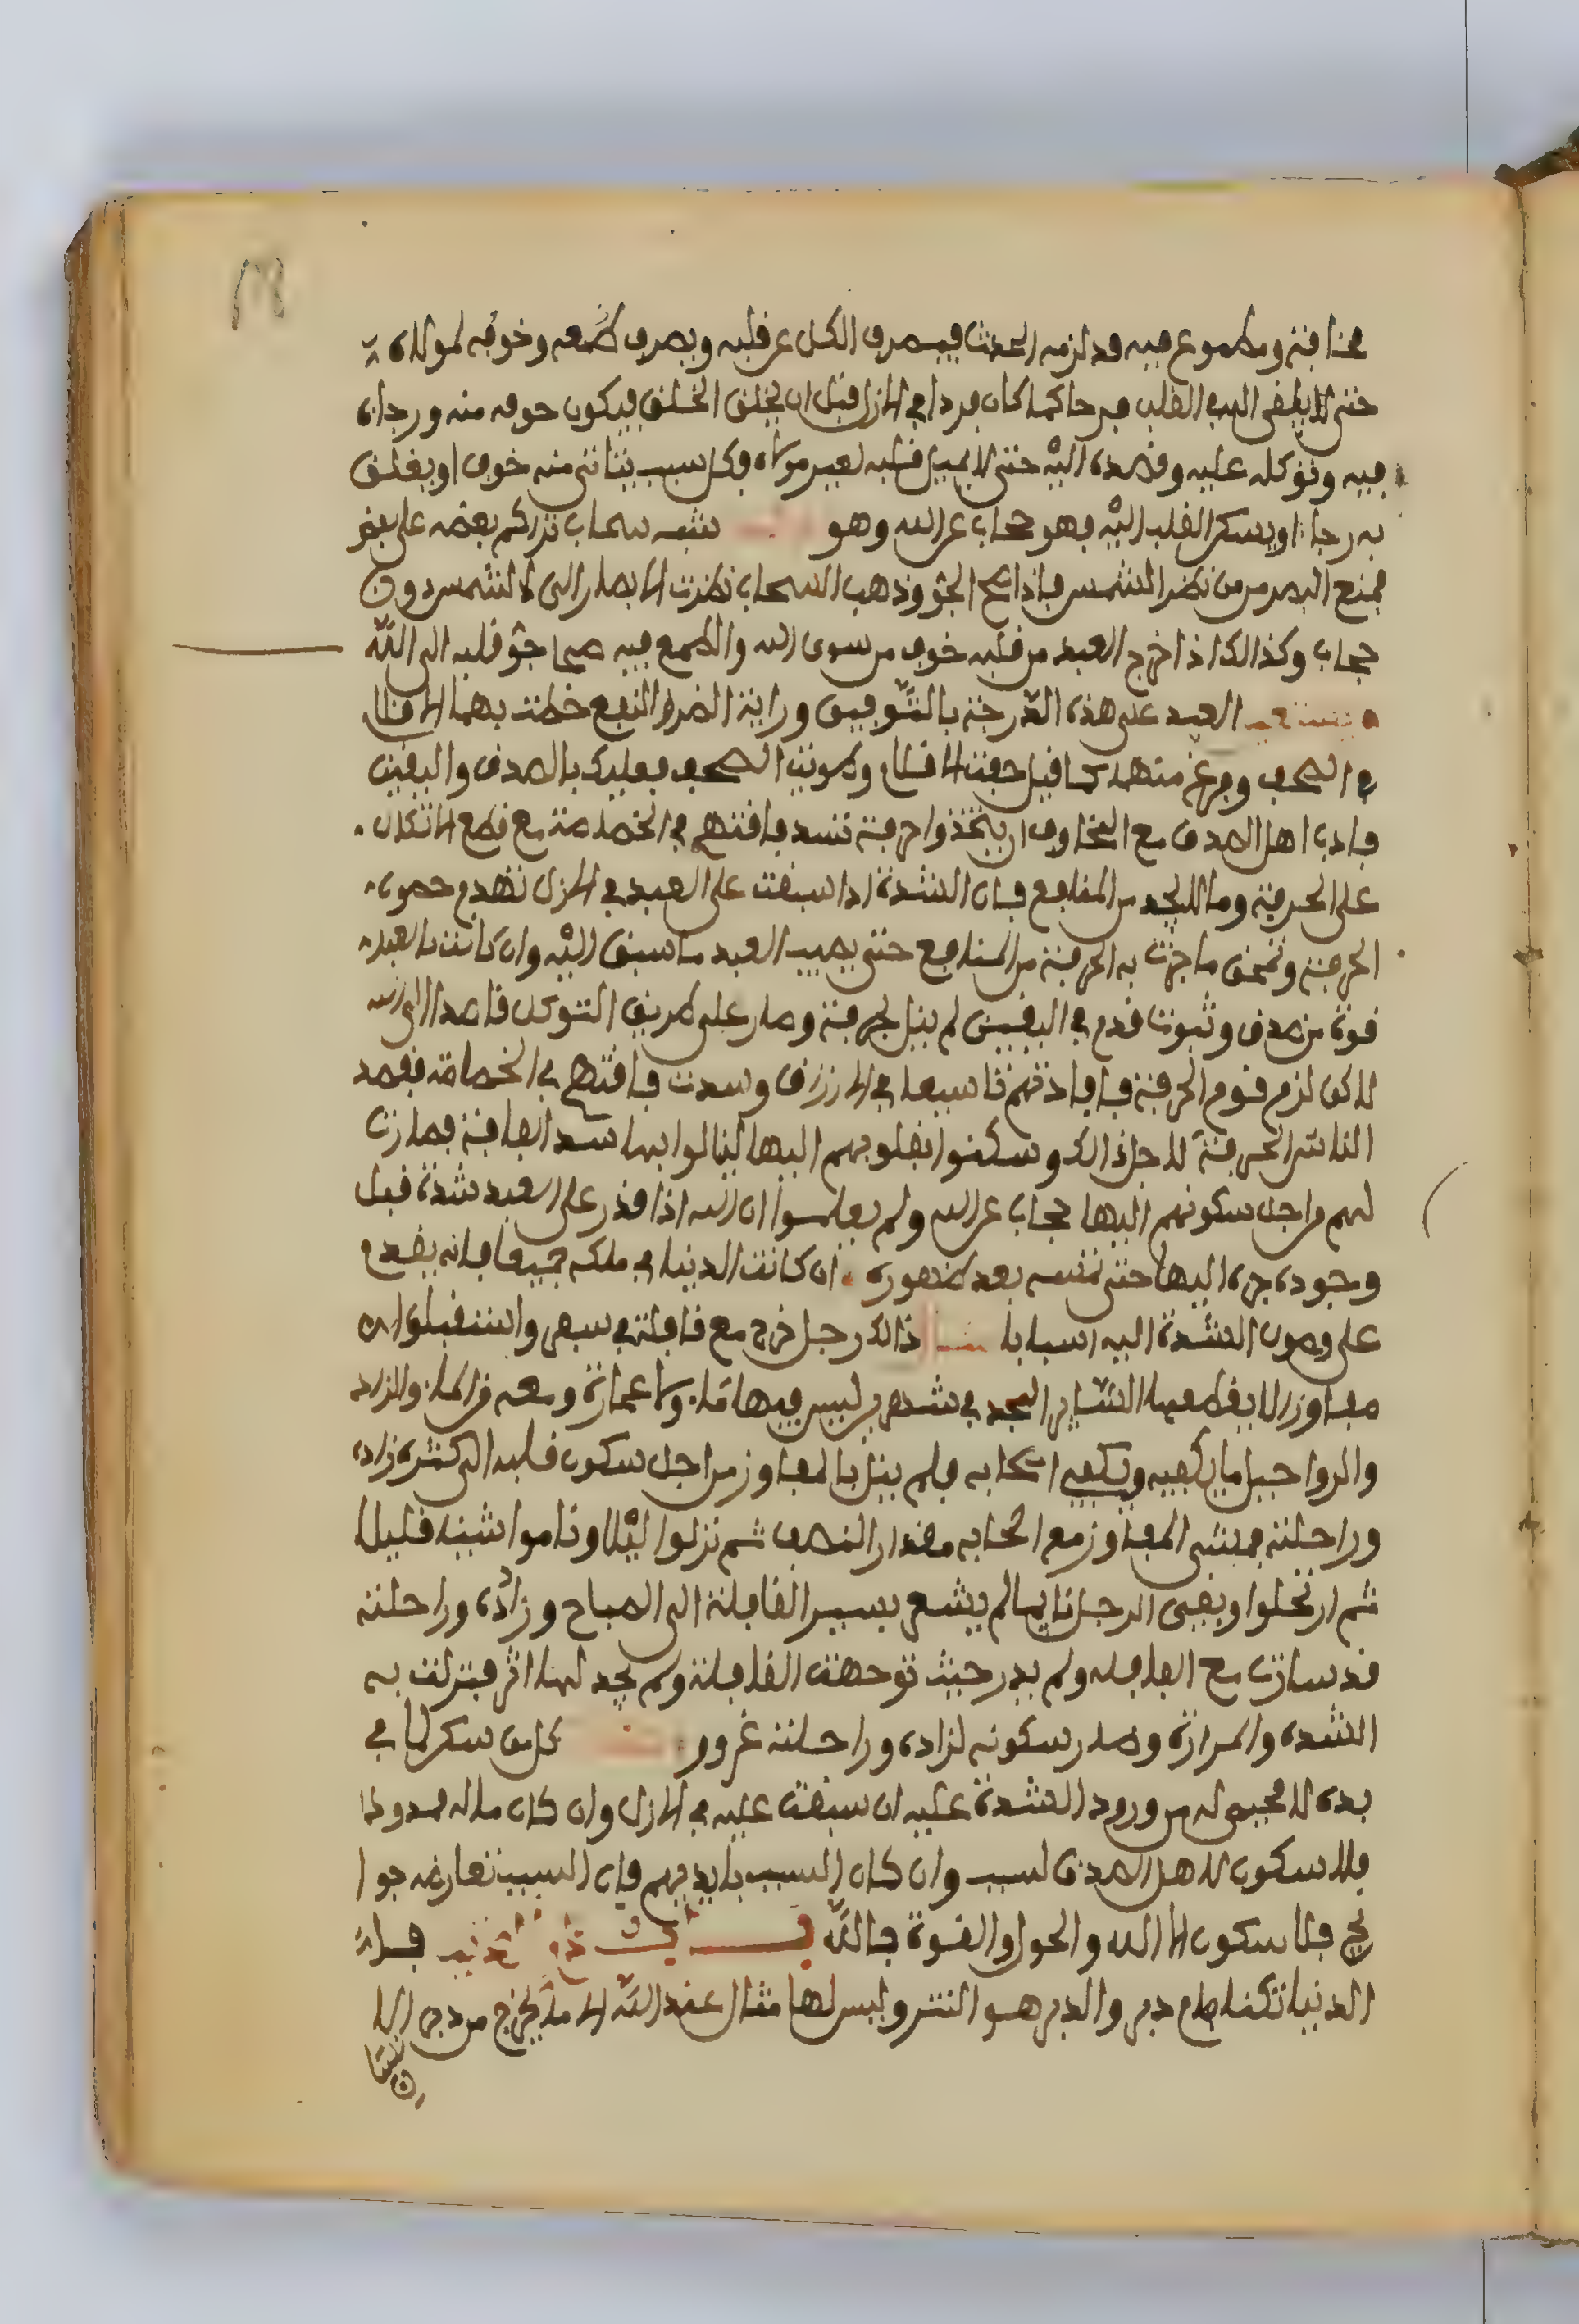 مخافته ومطموع فيه قد لزمه الحدث فيصرف الكل عن قلبه ويصرف طمعه وخوفه لمولاه
حتى لا يلفى الهم القلب فرحا كما كان فردا في الازل قبل ان يخلق الخلق فيكون خوفه منه ورجاه
فيه وتوكله عليه وقصده اليه حتى لا يميل قلبه لغير مولاه وكل سبب يتاتى منه خوف او يغلق
به رجاء او يسكن القلب اليه فهو حجاب عن الله وهو شبه سحاب تراكم بعضه على بعض
فمنع البصر من نظر الشمس فاذا صح الجو وذهب السحاب نظرت الابصار الى الشمس دون
حجاب وكذالك اذا خرج العبد من قلبه خوف من سوى الله والطمع فيه صحا جو قلبه الى الله
العبد على هذه الدرجة بالتوفيق وراية الضر والنفع خطت بهما الاقلام
في الصحف وفرغ منهما كما قيل جفت الاقلام وطويت الصحف فعليك بالصدق واليقين
فادب اهل الصدق مع المخاوف ان يتخذوا حرفة تسد فاقتهم في الخصاصة مع قطع الاتكال
على الحرفة وما لايجد من المنافع فان الشدة اذا سبقت على العبد في الازل تهدم حصون
الحرفة وتمحق ما جرت به الحرفة من المنافع حتى يصيب العبد ما سبق اليه وان كانت بالعبد
قوة من صدق وثبوت قدم في اليقين لم ينل لحرفة وصار على طريق التوكل قاصدا الى الله
لاكن لزم قوم الحرفة فافادتهم تاسيعا في الارزاق وسدت فاقتهم في الخصاصة فقصد
الناس الحرفة لاجل ذالك وسكنوا بقلوبهم اليها لينالوا بها سد الفاقة فصارت
لهم من اجل سكونهم اليها حجاب عن الله ولم يعلموا ان الله اذا قدر على العبد شدة قبل
وجوده جره اليها حتى تمسه بعد ظهوره ان كانت الدنيا في ملكه جميعا فانه يقدم
على وصول الشدة اليه اسبابا ذالك رجل خرج مع قافلة في سفر واستقبلوا
مفاوز لا يقطعها الساير المجد في شهر ليس فيها ماء ولا عمارة ومعه من الماء والزاد
والرواحيل ما يكفيه ويكفي اصحابه فلم ينل بالمفاوز من اجل سكون قلبه الى كثرة زاده
وراحلته فمشى المفاوز مع اصحابه مقدار النصف ثم نزلوا ليلا وناموا شيئا قليلا
ثم ارتحلوا وبقى الرجل نايما لم يشعر بسير القافلة الى الصباح وزاده وراحلته
قد سارت مع القافلة ولم يدر حيث توجهت القافلة ولم يجد لها اثر فنزلت به
الشدة والمرارة وصار سكونه لزاده وراحلته غرور كل من سكن لما في
يده لا محيص له من ورود الشدة عليه ان سبقت عليه في الازل وان كان ماله ممدودا
فلا سكون لاهل الصدق لسبب وان كان السبب بايديهم فان السبب تعارضه جوا
يح فلا سكون الا الله والحول والقوة بالله
الدنيا تكنا بام دفر والدفر هو النتن وليس لها مثال عند الله الا ما يخرج من دبر الا
نسان